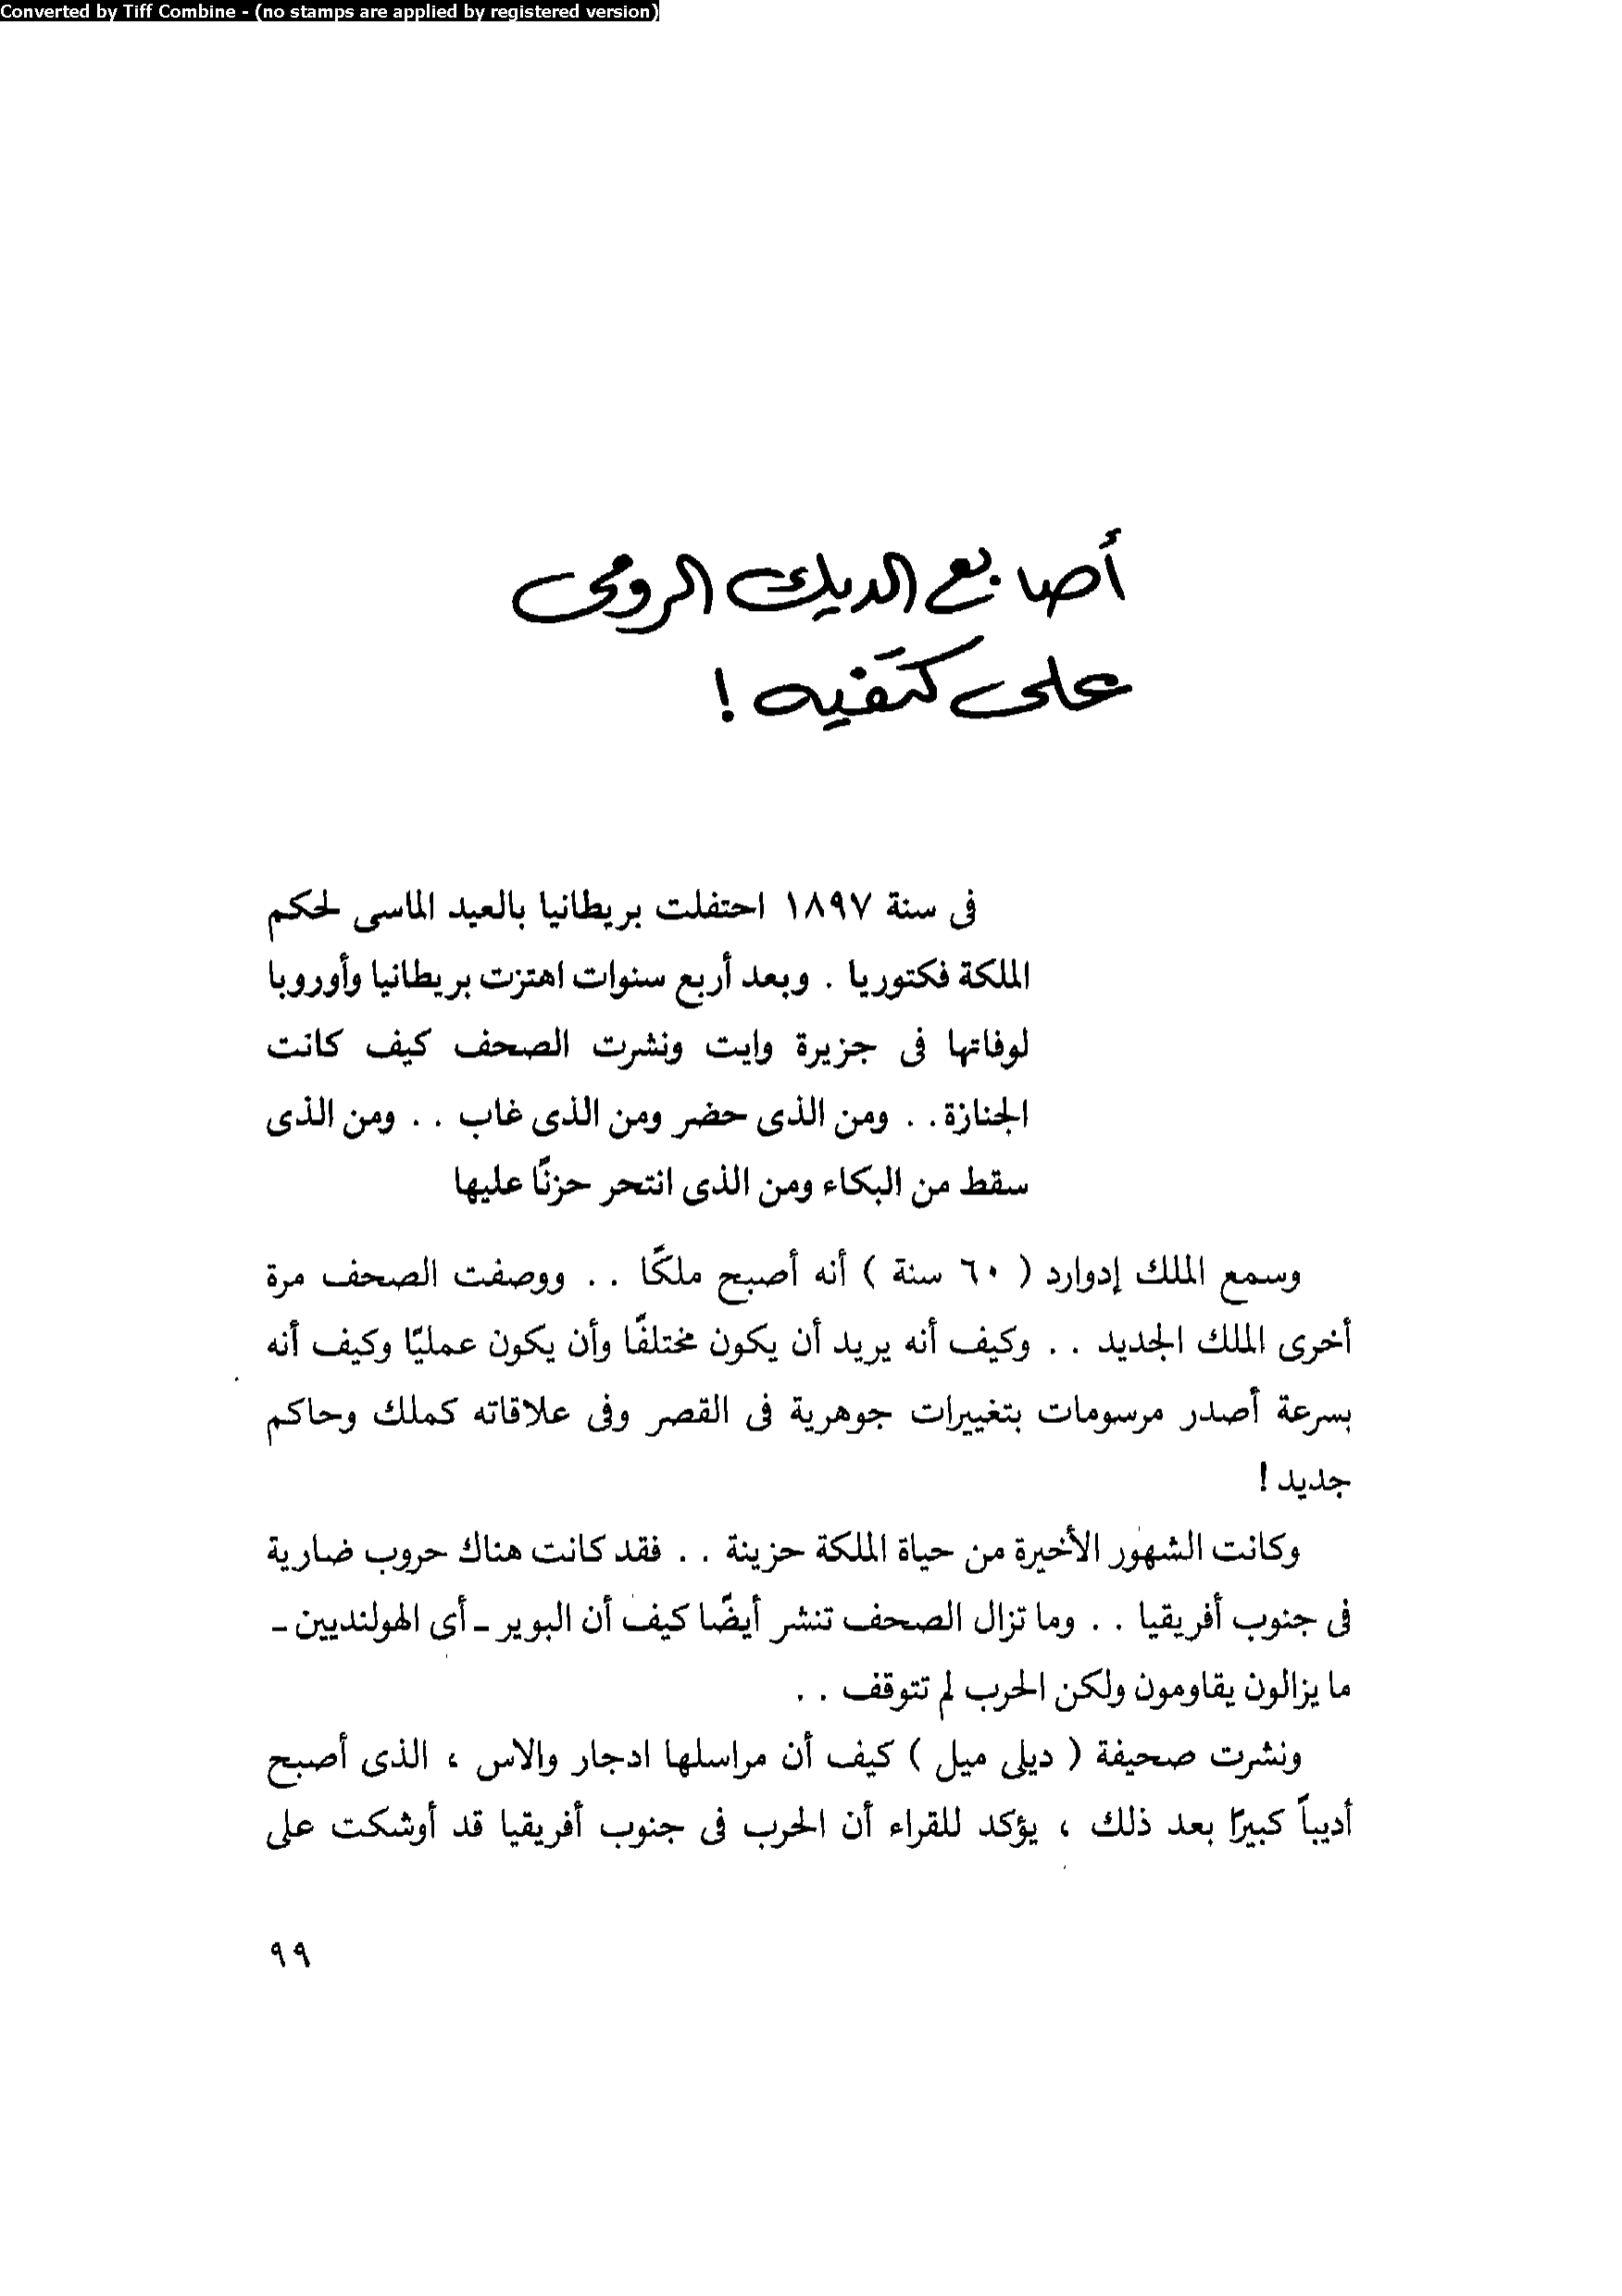 Converted by Tiff Combine - (no stamps are applied by registered version)
أصابع الديك الرومى
على كتفيه !
فى سنة ١٨٩٧ احتفلت بريطانيا بالعيد الماسى لحكم
الملكة فكتوريا . وبعد أربع سنوات اهتزت بريطانيا وأوروبا
لوفاتها فى جزيرة وايت ونشرت الصحف كيف كانت
الجنازة . . ومن الذى حضر ومن الذى غاب . . ومن الذى
سقط من البكاء ومن الذى انتحر حزنًا عليها
وسمع الملك إدوارد ( ٦٠ سنة ) أنه أصبح ملكًا . . ووصفت الصحف مرة
أخرى الملك الجديد . . وكيف أنه يريد أن يكون مختلفًا وأن يكون عمليًا وكيف أنه
بسرعة أصدر مرسومات بتغييرات جوهرية فى القصر وفى علاقاته كملك وحاكم
جديد !
وكانت الشهور الأخيرة من حياة الملكة حزينة . . فقد كانت هناك حروب ضارية
فى جنوب أفريقيا . . وما تزال الصحف تنشر أيضًا كيف أن البوير ـ أى الهولنديين ـ
ما يزالون يقاومون ولكن الحرب لم تتوقف . .
ونشرت صحيفة ( ديلى ميل ) كيف أن مراسلها ادجار والاس ، الذى أصبح
أديباً كبيرًا بعد ذلك ، يؤكد للقراء أن الحرب فى جنوب أفريقيا قد أوشكت على
٩٩